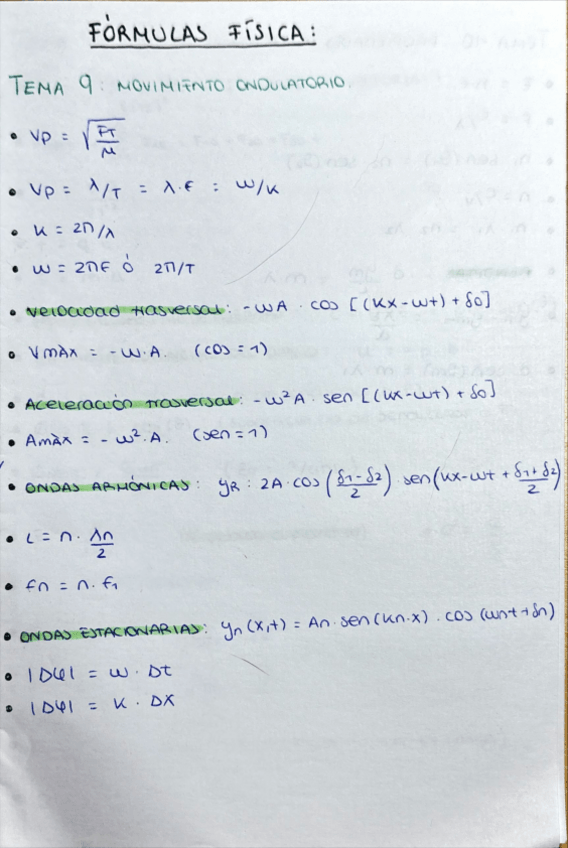 FÓRMULAS FÍSICA:
TEMA 9: MOVIMIENTO ONDULATORIO.
• Vp = √(FT/μ)
• Vp = λ/T = λ·F = ω/K
• K = 2π/λ
• ω = 2πF ó 2π/T
• Velocidad trasversal: -ωA · cos [(Kx-ωt) + δ0]
• Vmàx = -ω·A. (cos=1)
• Aceleración trasversal: -ω²A · sen [(Kx-ωt) + δ0]
• Amàx = -ω²·A. (sen=1)
• ONDAS ARMÓNICAS: yR: 2A·cos((δ1-δ2)/2)·sen(Kx-ωt + (δ1+δ2)/2)
• L = n · λn/2
• fn = n·f1
• ONDAS ESTACIONARIAS: yn(x,t) = An·sen(Kn·x)·cos(ωnt+δn)
• |Δφ| = ω · Δt
• |Δφ| = K · Δx